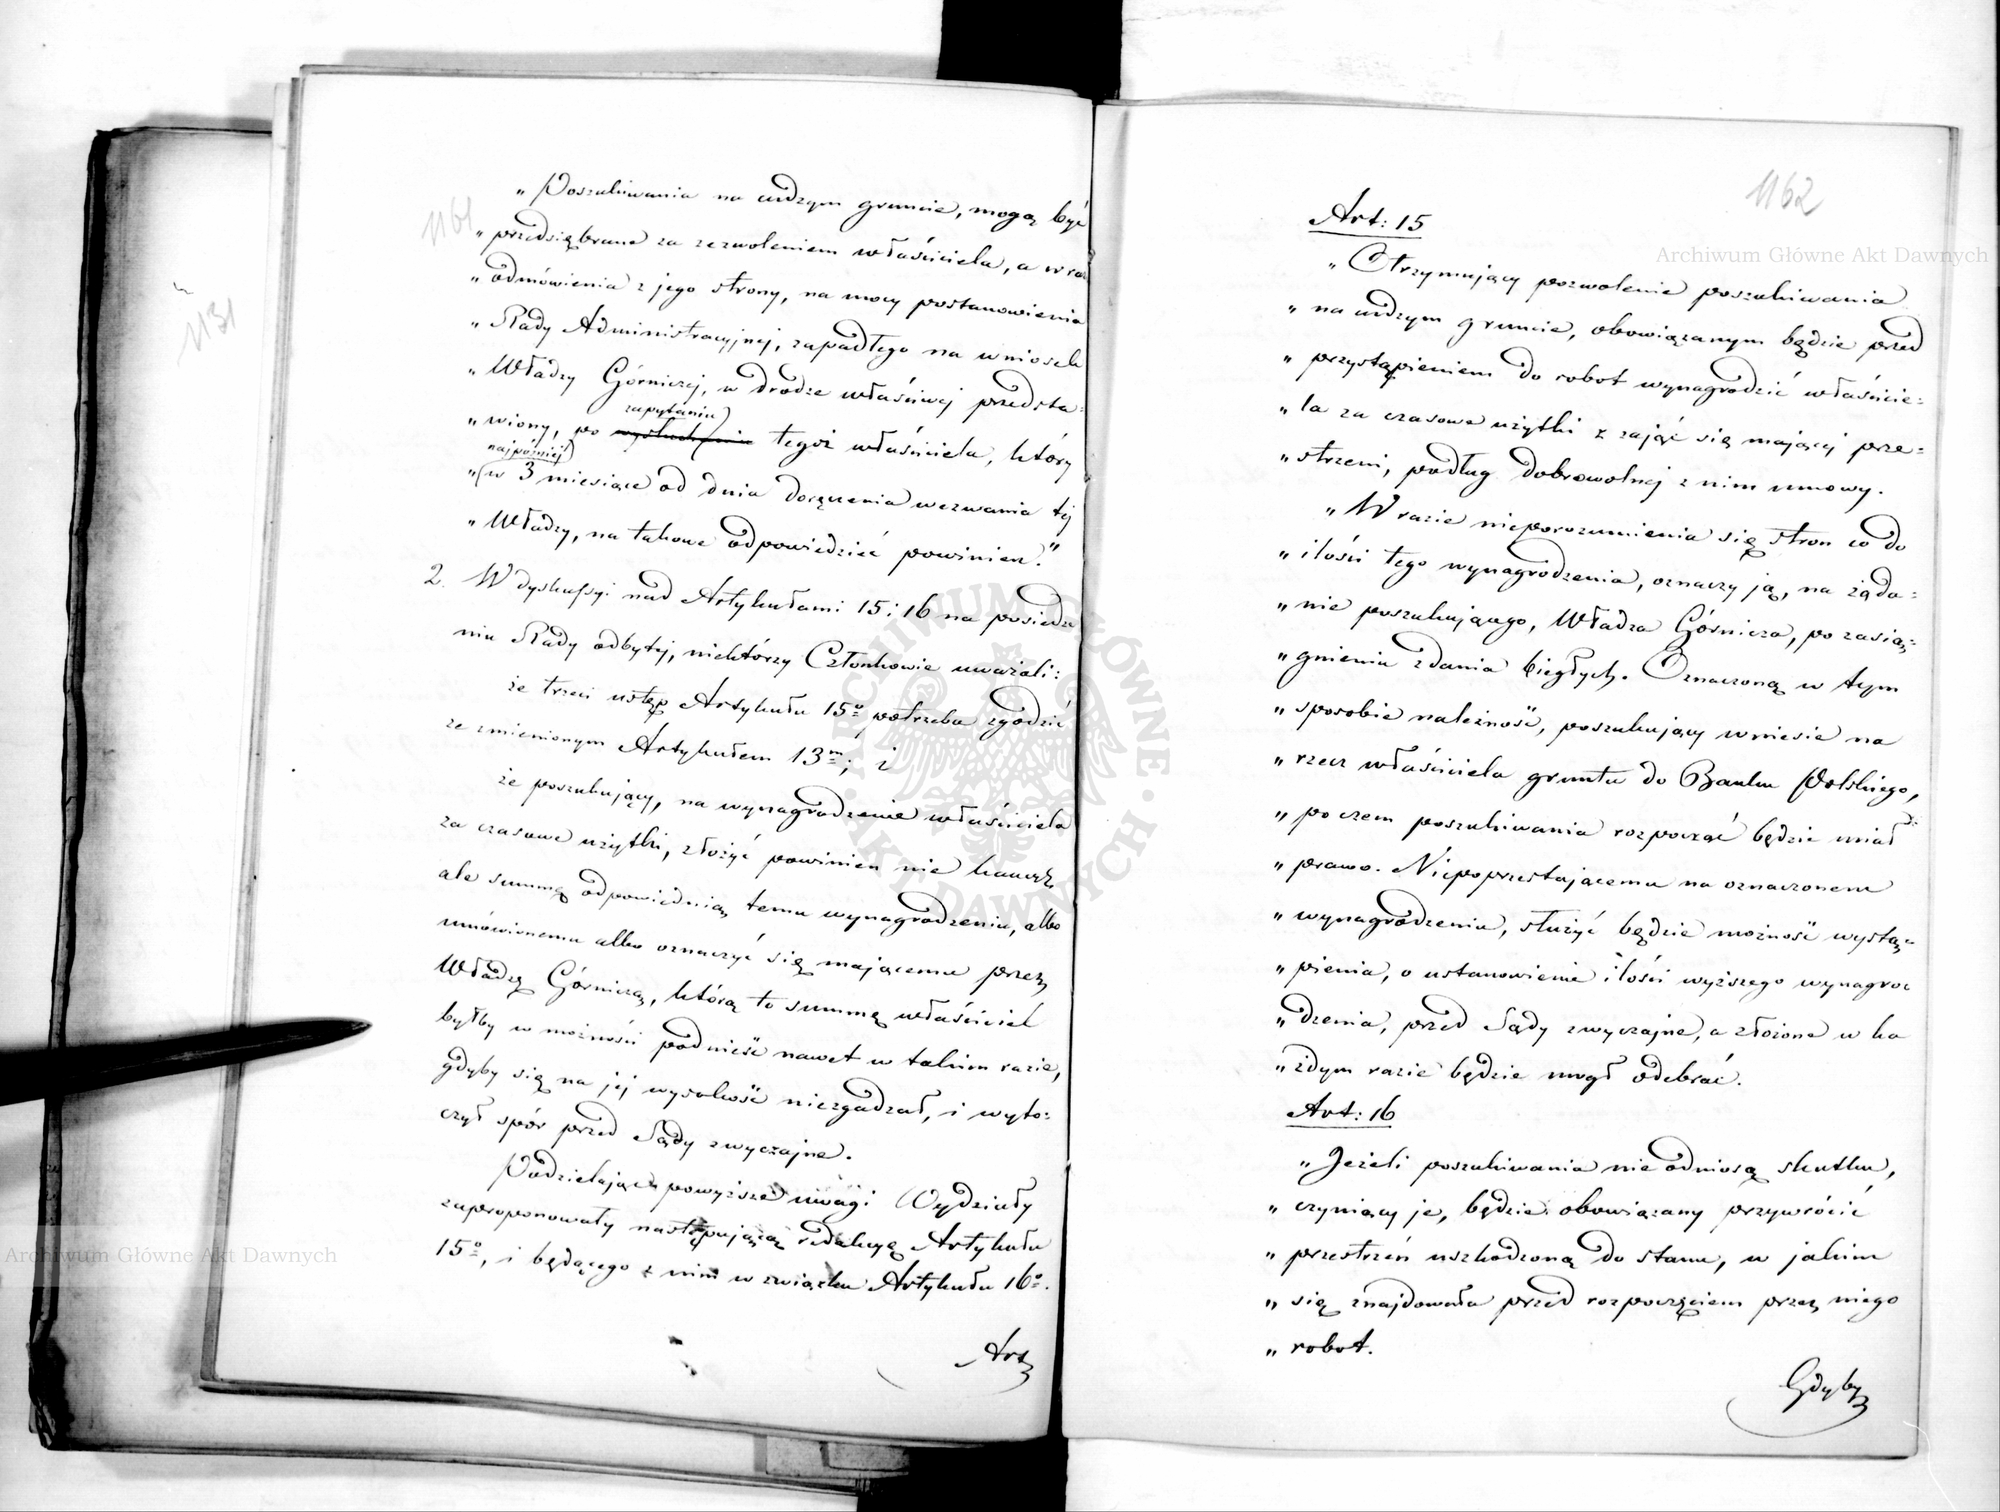 1161
„ Poszukiwania na cudzym gruncie, mogą być
„ przedsiębrane za zezwoleniem właściciela, a w ra
„ odmówienia z jego strony, na mocy postanowienia
„ Rady Administracyjnej, zapadłego na wniosek
„ Władzy Górniczej, w drodze właściwej przedsta-
zapytaniu
„ wiony, po wysłuchaniu tegoż właściciela, który
najpóźniej
„ w 3 miesiące od dnia doręczenia wezwania tej
„ Władzy, na takowe odpowiedzieć powinien."
2. W dyskussyi nad Artykułami 15 i 16 na posiedze
niu Rady odbytej, niektórzy Członkowie uważali:
że trzeci ustęp Artykułu 15º potrzeba zgodzić
ze zmienionym Artykułem 13m; i
że poszukujący, na wynagrodzenie właściciela
za czasowe użytki, złożyć powinien nie kaucyę,
ale summę odpowiednią temu wynagrodzeniu, albo
umówionemu albo oznaczyć się mającemu przez
Władzę Górniczą, którą to summę właściciel
byłby w możności podnieść nawet w takim razie,
gdyby się na jej wysokość niezgadzał, i wyto-
czył spór przed Sądy zwyczajne.
Podzielając powyższe uwagi Wydziały
zaproponowały następującą redakcyą Artykułu
15º, i będącego z nim w związku Artykułu 16º.
Art
1131
1162
Art: 15
„ Otrzymujący pozwolenie poszukiwania
„ na cudzym gruncie, obowiązanym będzie przed
„ przystąpieniem do robot wynagrodzić właście-
„ la za czasowe użytki z zająć się mającej prze-
„ strzeni, podług dobrowolnej z nim umowy.
„ W razie nieporozumienia się stron co do
„ ilości tego wynagrodzenia, oznaczy ją, na żąda-
„ nie poszukującego, Władza Górnicza, po zasią-
„ gnieniu zdania biegłych. Oznaczoną w tym
„ sposobie należność, poszukujący wniesie na
„ rzecz właściciela gruntu do Banku Polskiego,
„ poczem poszukiwania rozpocząć będzie miał
„ prawo. Niepoprzestającemu na oznaczonem
„ wynagrodzeniu, służyć będzie możność wystą-
„ pienia, o ustanowienie ilości wyższego wynagro
„ dzenia, przed Sądy zwyczajne, a złożone w ka
„ żdym razie będzie mógł odebrać.
Art: 16
„ Jeżeli poszukiwania nie odniosą skutku,
„ czyniący je, będzie obowiązany przywrócić
„ przestrzeń uszkodzoną do stanu, w jakim
„ się znajdowała przed rozpoczęciem przez niego
„ robot.
Gdyby
Archiwum Główne Akt Dawnych
Archiwum Główne Akt Dawnych
ARCHIWUM GŁÓWNE · AKT DAWNYCH ·